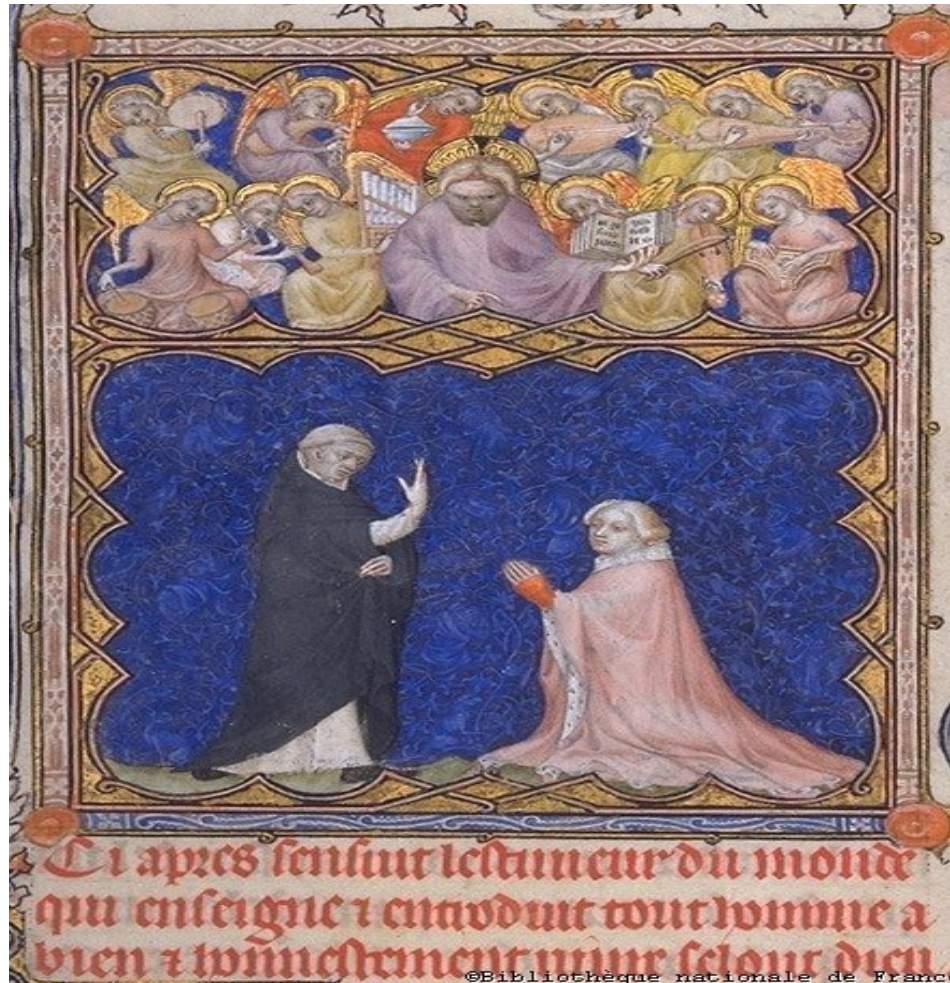 Ci apres sensuit lestimeur du monde
qui enseigne ⁊ entroduit tout homme a
bien ⁊ honnestement viure selonc dieu
©Bibliothèque nationale de Franc